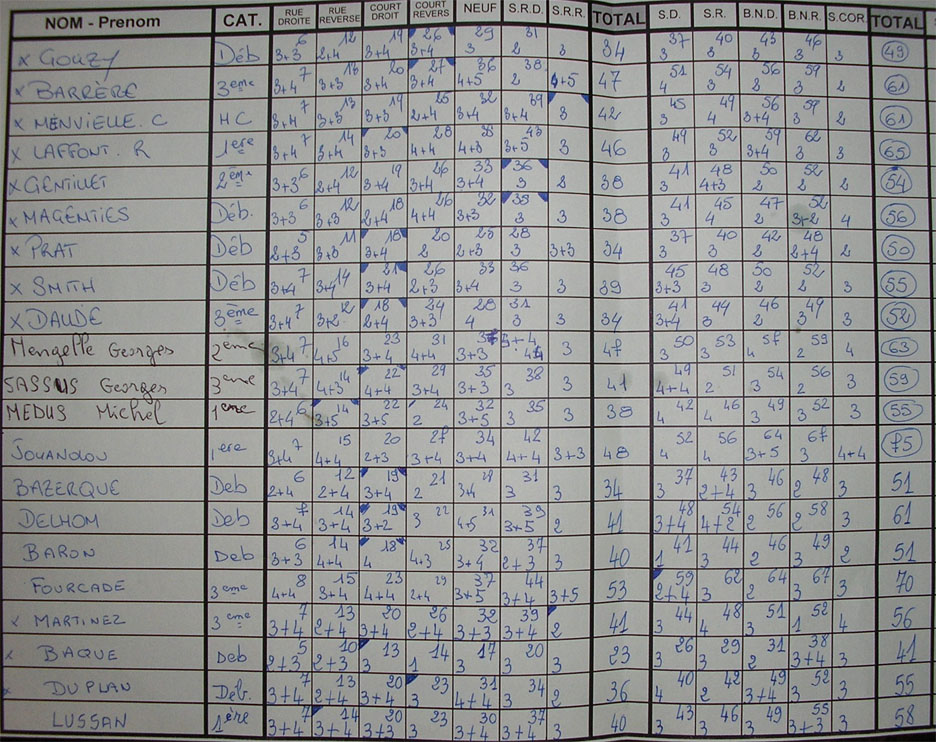 NOM - Prenom CAT. RUE DROITE RUE REVERSE COURT DROIT COURT REVERS NEUF S.R.D. S.R.R. TOTAL S.D. S.R. B.N.D. B.N.R. S.COR. TOTAL
x GOUZY Déb 3+3 6 2+4 12 3+4 19 3+4 26 3 29 2 31 3 34 3 37 3 40 3 43 3 46 3 49
x BARRÈRE 3eme 3+4 7 3+3 13 3+4 20 3+4 27 4+5 36 2 38 4+5 47 4 51 3 54 2 56 3 59 2 61
x MENVIELLE. C H.C 3+4 7 3+3 13 3+3 19 2+4 25 3+4 32 3+4 39 3 42 3 45 4 49 3+4 56 3 59 2 61
x LAFFONT. R 1ere 3+4 7 3+4 14 3+3 20 4+4 28 4+3 35 3+5 43 3 46 3 49 3 52 3+4 59 3 62 3 65
x GENTILLET 2ème 3+3 6 2+4 12 3+4 19 3+4 26 3+4 33 3 36 2 38 3 41 4+3 48 2 50 2 52 2 54
x MAGENTIES Déb. 3+3 6 3+3 12 2+4 18 4+4 26 3+3 32 3 35 3 38 3 41 4 45 2 47 3+2 52 4 56
x PRAT Déb 2+3 5 3+3 11 3+4 18 2 20 2+3 25 3 28 3+3 34 3 37 3 40 2 42 2+4 48 2 50
x SMITH Déb 3+4 7 3+4 14 3+4 21 2+3 26 3+4 33 3 36 3 39 3+3 45 3 48 2 50 2 52 3 55
x DAUDE 3ème 3+4 7 3+2 12 2+4 18 3+3 24 4 28 3 31 3 34 3+4 41 3 44 2 46 3 49 3 52
Mengelle Georges 2eme 3+4 7 4+5 16 3+4 23 4+4 31 3+3 37 3 47 3 50 3 53 4 57 2 59 4 63
SASSUS Georges 3eme 3+4 7 4+3 14 4+4 22 3+4 29 3+3 35 3 38 3 41 4+4 49 2 51 3 54 2 56 3 59
MEDUS Michel 1eme 2+4 6 3+5 14 3+5 22 2 24 3+5 32 3 35 3 38 4 42 4 46 3 49 3 52 3 55
JOUANOLOU 1ere 3+4 7 4+4 15 2+3 20 3+4 27 3+4 34 4+4 42 3+3 48 4 52 4 56 3+5 64 3 67 4+4 75
BAZERQUE Deb 2+4 6 2+4 12 3+4 19 2 21 3+4 28 3 31 3 34 3 37 2+4 43 3 46 2 48 3 51
DELHOM Deb 3+4 7 3+4 14 3+2 19 3 22 4+5 31 3+5 39 2 41 3+4 48 4+2 54 2 56 2 58 3 61
BARON Deb 3+3 6 4+4 14 4 18 4+3 25 3+4 32 2+3 37 3 40 1 41 3 44 2 46 3 49 2 51
FOURCADE 3eme 4+4 8 3+4 15 4+4 23 2+4 29 3+5 37 3+4 44 3+5 53 2+4 59 3 62 2 64 3 67 3 70
x MARTINEZ 3eme 3+4 7 2+4 13 3+4 20 2+4 26 3+3 32 3+4 39 2 41 3 44 4 48 3 51 1 52 4 56
x BAQUE Deb 2+3 5 2+3 10 3 13 1 14 3 17 3 20 3 23 3 26 3 29 2 31 3+4 38 3 41
x DUPLAN Déb. 3+4 7 2+4 13 3+4 20 3 23 4+4 31 3 34 2 36 4 40 2 42 3+4 49 3 52 3 55
LUSSAN 1ère 3+4 7 3+4 14 3+3 20 3 23 3+4 30 3+4 37 3 40 3 43 3 46 3 49 3+3 55 3 58